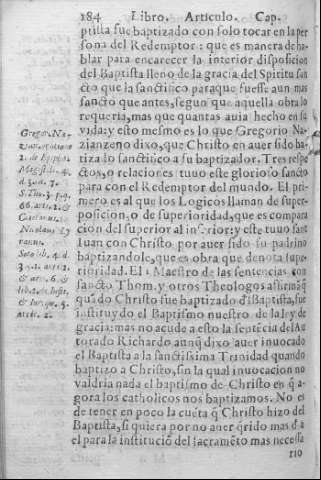 184 Libro. Articulo. Cap.
ptista fue baptizado con solo tocar en la per
sona del Redemptor : que es manera de ha-
blar para encarecer la interior disposicion
del Baptista lleno de la gracia del Spiritu san
cto que la sanctifico para que fuesse aun mas
sancto que antes, segun que aquella obra lo
requeria, mas que quantas auia hecho en su
vida: y esto mesmo es lo que Gregorio Na-
zianzeno dixo, que Christo en auer sido bap
tiza lo sanctifico a su baptizador. Tres respe
ctos, o relaciones tuuo este glorioso sancto
para con el Redemptor del mundo. El pri-
mero es al que los Logicos llaman de super-
posicion, o de superioridad, que es compara
cion del superior al inferior: y este tuuo sant
Iuan con Christo por auer sido su padrino
baptizandole, que es obra que denota supe-
rioridad. El Maestro de las sentencias con
sancto Thom. y otros Theologos affirmã q̃
quãdo Christo fue baptizado d̃l Baptista, fue
instituydo el Baptismo nuestro de la ley de
gracia: mas no acude a esto la sentẽcia del Au
torado Richardo aunq̃ dixo auer inuocado
el Baptista a la sanctissima Trinidad quando
baptizo a Christo, sin la qual inuocacion no
valdria nada el baptismo de Christo en q̃ a-
gora los catholicos nos baptizamos. No es
de tener en poco la cuẽta q̃ Christo hizo del
Baptista, si quiera por no auer q̃rido mas d̃ a
el para la instituciõ del sacramẽto mas necessa
rio
Gregor. Na-
zian.
2. de Epiph.
Magist. 4.
d. 3.
S. Tho. 3. par.
66. arti. 2. &
Caietanus.
Nicolaus Ly
ranus.
Soto lib. 4. d.
3. q. 1. arti. 2.
& arti. 6. &
lib. 2. de Iusti.
& Iure, q. 4.
artic. 2.